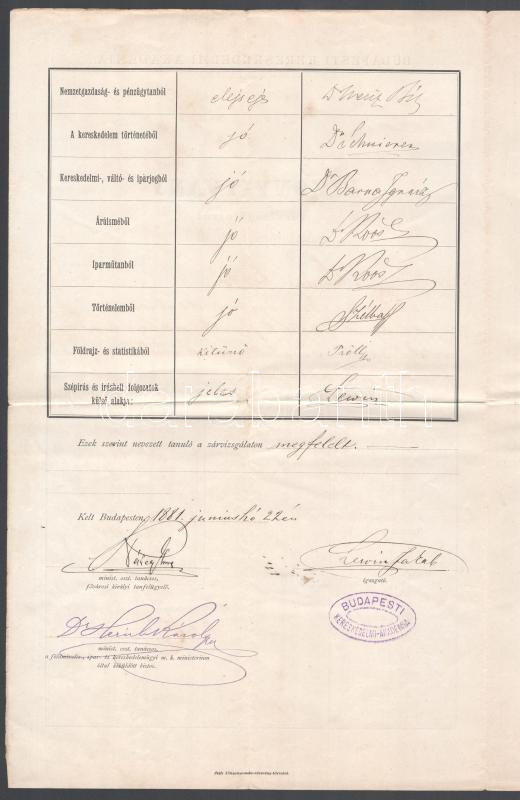 Nemzetgazdaság- és pénzügytanból
A kereskedelem történetéből jó
Kereskedelmi-, váltó- és iparjogból jó Dr Barna Ignácz
Áruisméből jó Dr Roós
Iparműtanból jó Dr Roós
Történelemből jó
Földrajz- és statistikából kitünő
Szépirás és irásbeli dolgozatok
külső alakja: jeles Lewin
darabanth
Ezek szerint nevezett tanuló a zárvizsgálaton megfelelt.
Kelt Budapesten, 1881. juniushó 22én
Lewin Jakab
minist. oszt. tanácsos,
fővárosi királyi tanfelügyelő.
igazgató.
BUDAPESTI
KERESKEDELMI-AKADEMIA
minist. tanácsos,
a földmivelés-, ipar- és kereskedelemügyi m. k. ministerium
által kiküldött biztos.